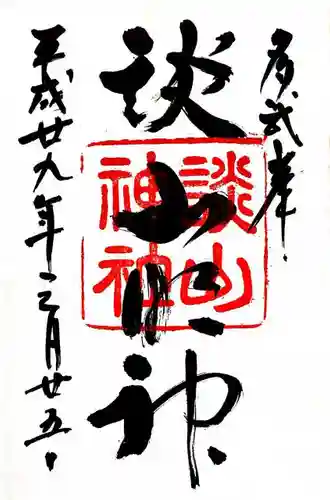 多武峯
談山明神
談山
神社
平成廿九年三月廿五日